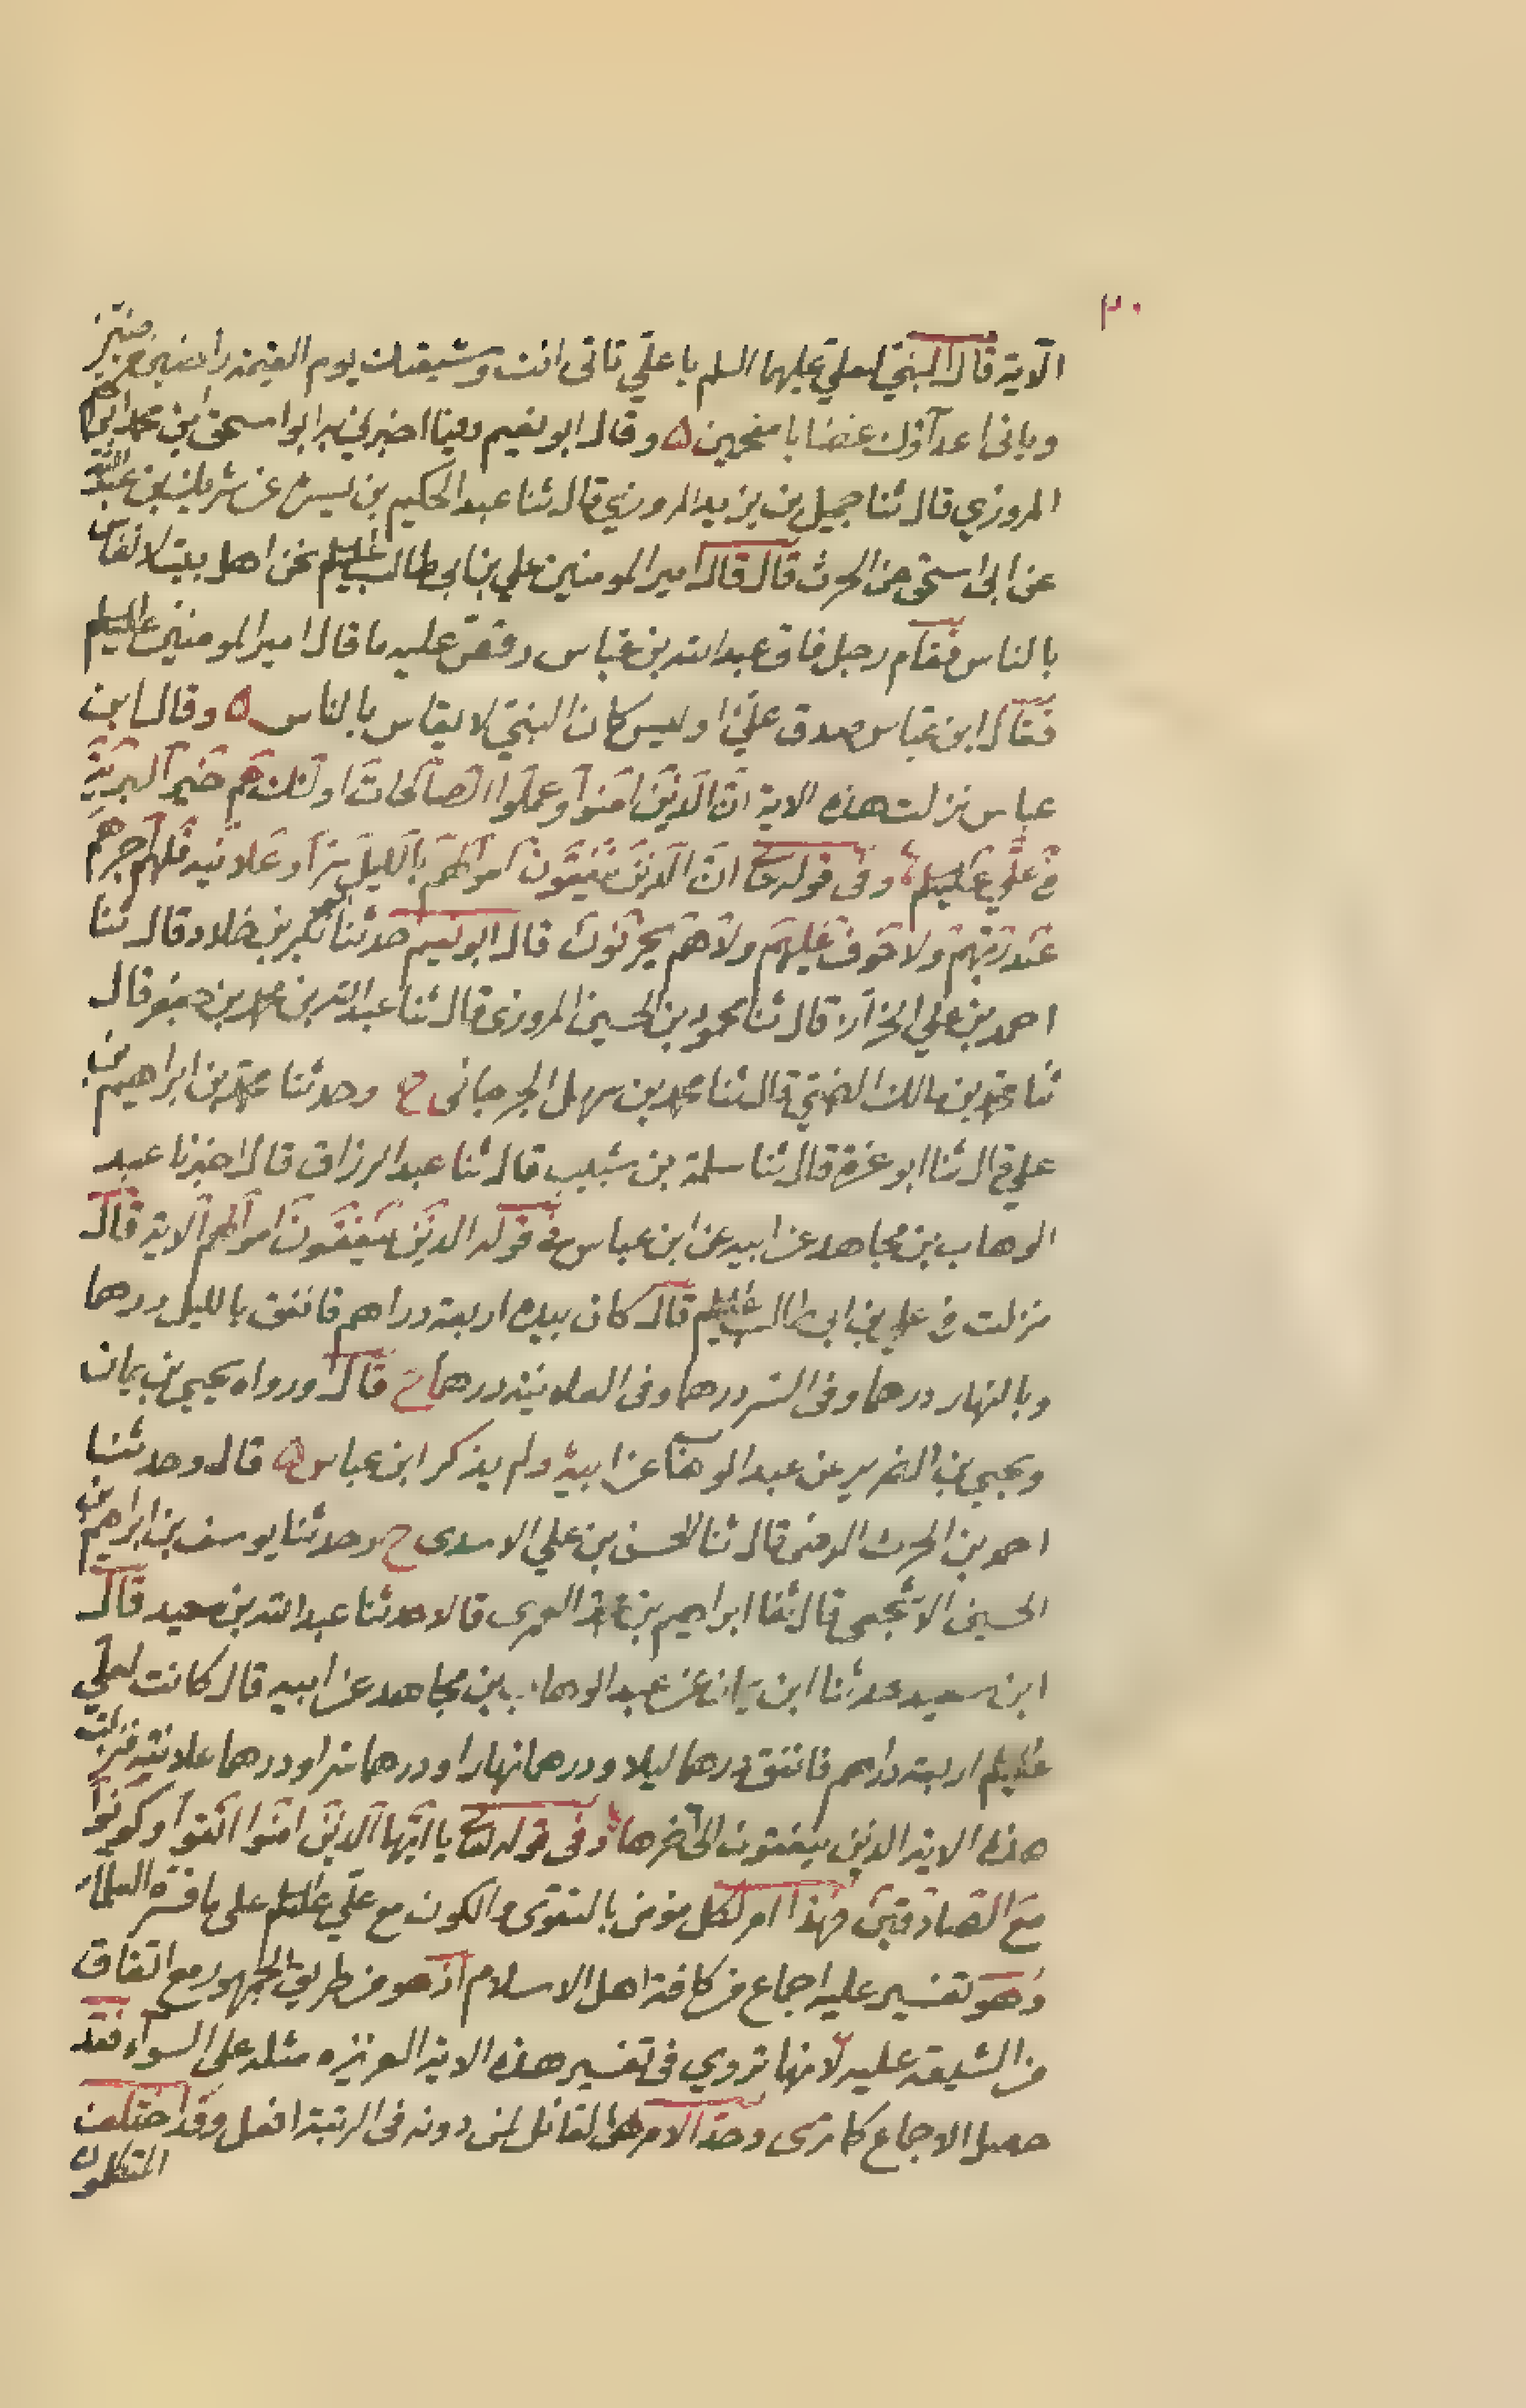 ٣٠
الآية قال النبي لعلي عليهما السلم يا علي تاتى انت وشيعتك يوم القيمة راضين مرضيين
وياتى اعداؤك غضابا مقمحين ٥ وقال ابو نعيم فيما اخبرني به ابو اسحق ابن محمد ابراهيم
المروزي قال ثنا جميل بن يزيد المروزي قال ثنا عبد الحكيم بن ميسرة عن شريك بن عبد الله
عن ابى اسحق عن الحرث قال قال امير المومنين علي بن ابى طالب عليه السلم نحن اهل بيت لا نقاس
بالناس فقام رجل فاتى عبد الله بن عباس فقص عليه ما قال امير المومنين عليه السلم
فقال ابن عباس صدق علي اوليس كان النبي لا يقاس بالناس ٥ وقال ابن
عباس نزلت هذه الاية ان الذين امنوا وعملوا الصالحات اولئك هم خير البرية
في علي عليه السلم وفى قوله تعالى ان الذين ينفقون اموالهم بالليل سرا وعلانية فلهم اجرهم
عند ربهم ولا خوف عليهم ولا هم يحزنون قال ابو نعيم حدثنا ابو بكر بن خلاد قال ثنا
احمد بن علي الخزاز قال ثنا محمود بن الحسين المروزى قال ثنا عبد الله بن محمد بن جعفر قال
ثنا محمد بن مالك الضبي قال ثنا محمد بن سهل الجرجانى ح وحدثنا محمد بن ابراهيم بن
علي قال ثنا ابو عروبة قال ثنا سلمة بن شبيب قال ثنا عبد الرزاق قال اخبرنا عبد
الوهاب بن مجاهد عن ابيه عن ابن عباس في قوله الذين ينفقون اموالهم الاية قال
نزلت في علي بن ابى طالب عليه السلم قال كان بيده اربعة دراهم فانفق بالليل درهما
وبالنهار درهما وفى السر درهما وفى العلانية درهما ح قال ورواه يحيى بن يمان
ويحيى بن الضريس عن عبد الوهاب عن ابيه ولم يذكر ابن عباس ٥ قال وحدثنا
احمد بن الحرث قال ثنا الحسن بن علي الاسدى ح وحدثنا يوسف بن ابراهيم بن
الحسين الاشجعى قال ثنا ابراهيم بن محمد العمرى قالا حدثنا عبد الله بن سعيد قال
ابن سعيد حدثنا ابن يمان عن عبد الوهاب بن مجاهد عن ابيه قال كانت لعلي
عليه السلم اربعة دراهم فانفق درهما ليلا ودرهما نهارا ودرهما سرا ودرهما علانية فنزلت
هذه الاية الذين ينفقون الى اخرها وفى قوله تعالى يا ايها الذين امنوا اتقوا وكونوا
مع الصادقين فهذا امر لكل مومن بالتقوى والكون مع علي عليه السلم على ما فسره العلماء
وهو تفسير عليه اجماع من كافة اهل الاسلام اذ هو من طريق الجمهور مع اتفاق
من الشيعة عليه لانها تروي فى تفسير هذه الاية العزيزه مثله على السواء فقد
حصل الاجماع كما ترى وحد الامر هو قول القائل لمن دونه فى الرتبة افعل وقد اختلف
المتكلمون